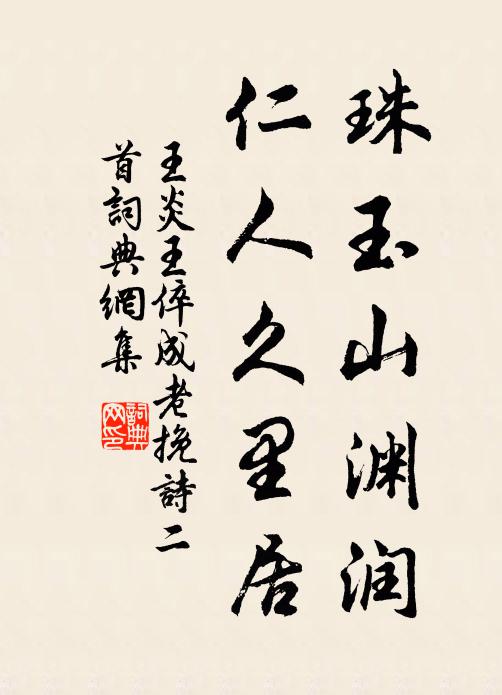 珠玉山渊润
仁人久里居
王炎王倅成老挽詩二
首詞典網集
詞典
网印